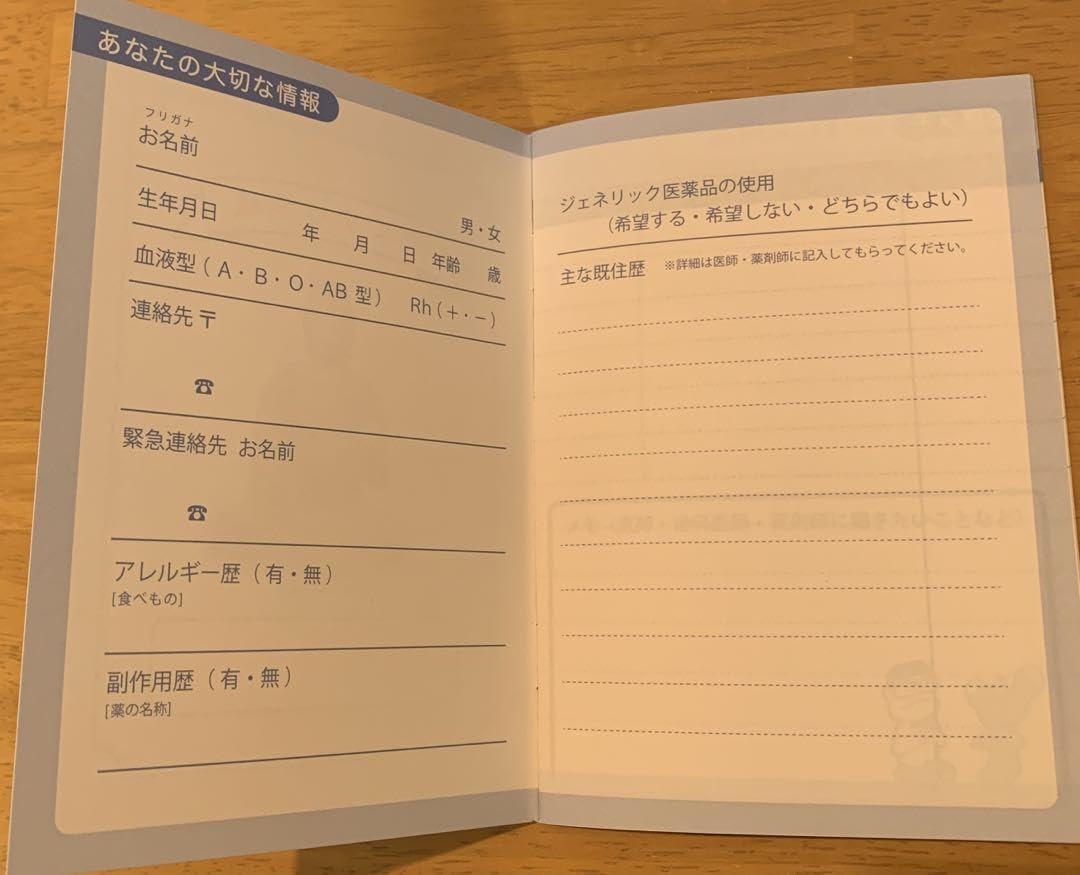 あなたの大切な情報
フリガナ
お名前
男・女
生年月日 年 月 日 年齢 歳
血液型（A・B・O・AB 型） Rh（＋・－）
連絡先 〒
☎
緊急連絡先 お名前
☎
アレルギー歴（有・無）
[食べもの]
副作用歴（有・無）
[薬の名称]
ジェネリック医薬品の使用
（希望する・希望しない・どちらでもよい）
主な既住歴 ※詳細は医師・薬剤師に記入してもらってください。